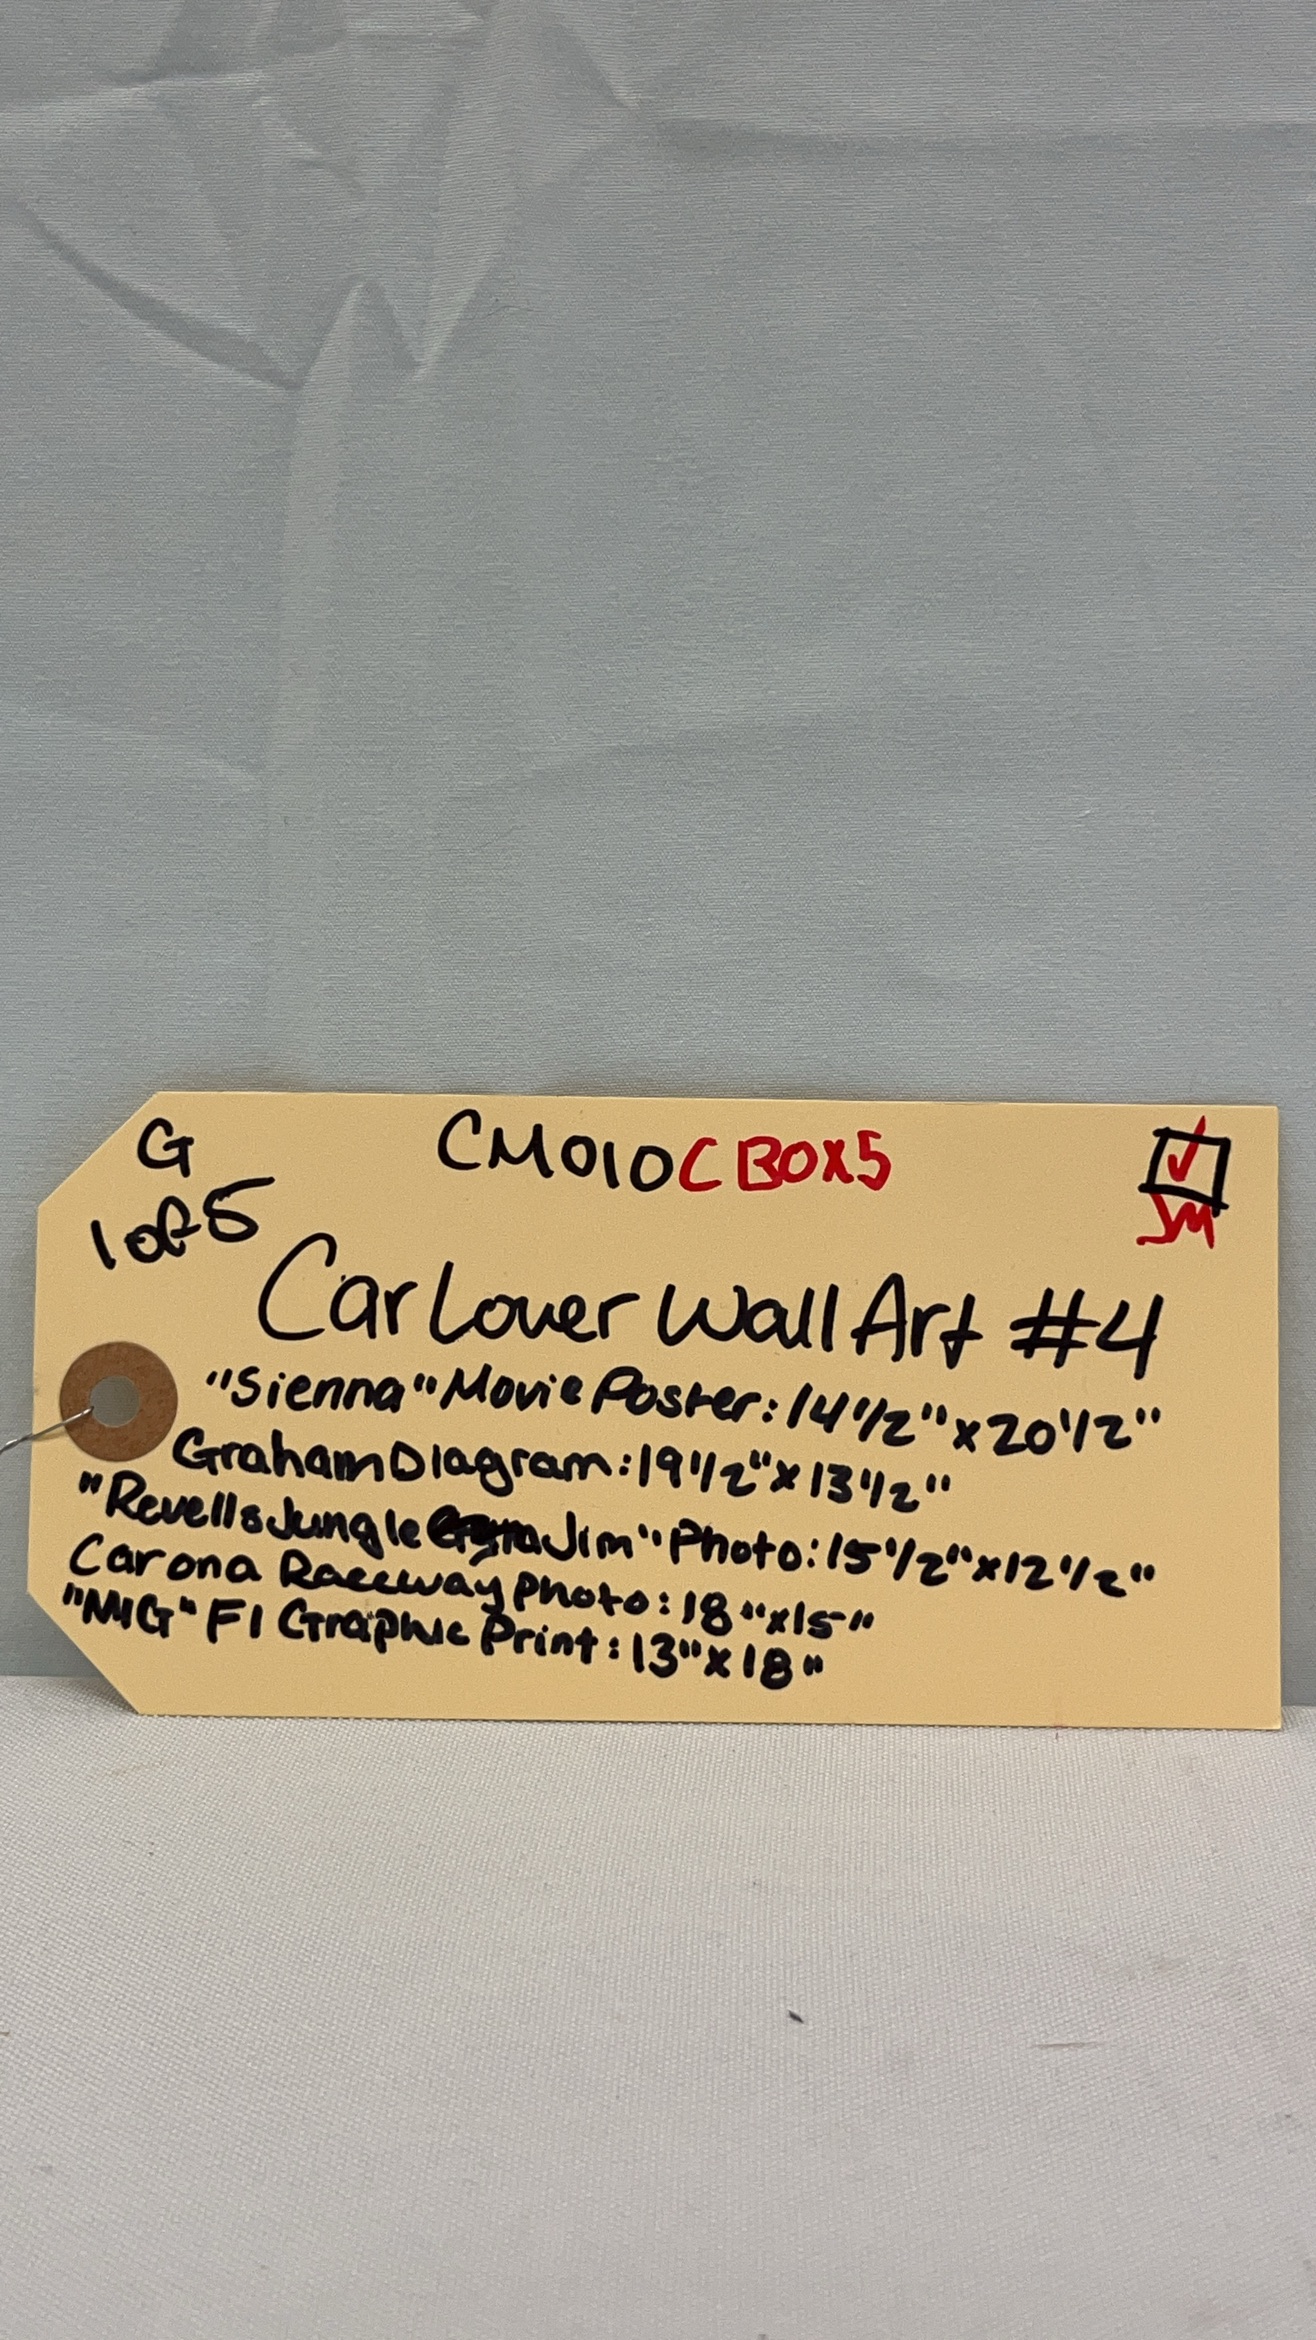 G
1 of 5
CM010C BOX5
JM
Car Lover Wall Art #4
"Sienna" Movie Poster: 14 1/2" x 20 1/2"
Graham Diagram: 19 1/2" x 13 1/2"
"Revells Jungle Jim" Photo: 15 1/2" x 12 1/2"
Carona Raceway Photo: 18" x 15"
"MIG" F1 Graphic Print: 13" x 18"